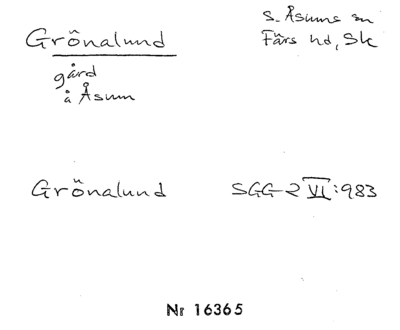 Grönalund
S. Åsums sn
Färs hd, Sk
gård
å Åsum
Grönalund
SGG 2 VI:983
Nr 16365